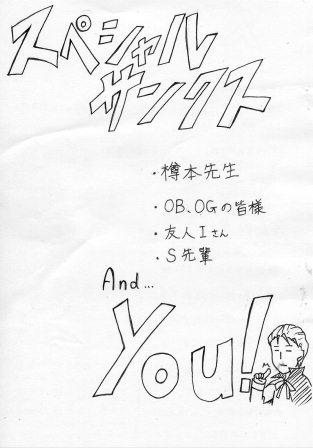 スペシャル
サンクス
・樽本先生
・OB、OGの皆様
・友人Iさん
・S先輩
And...
You!